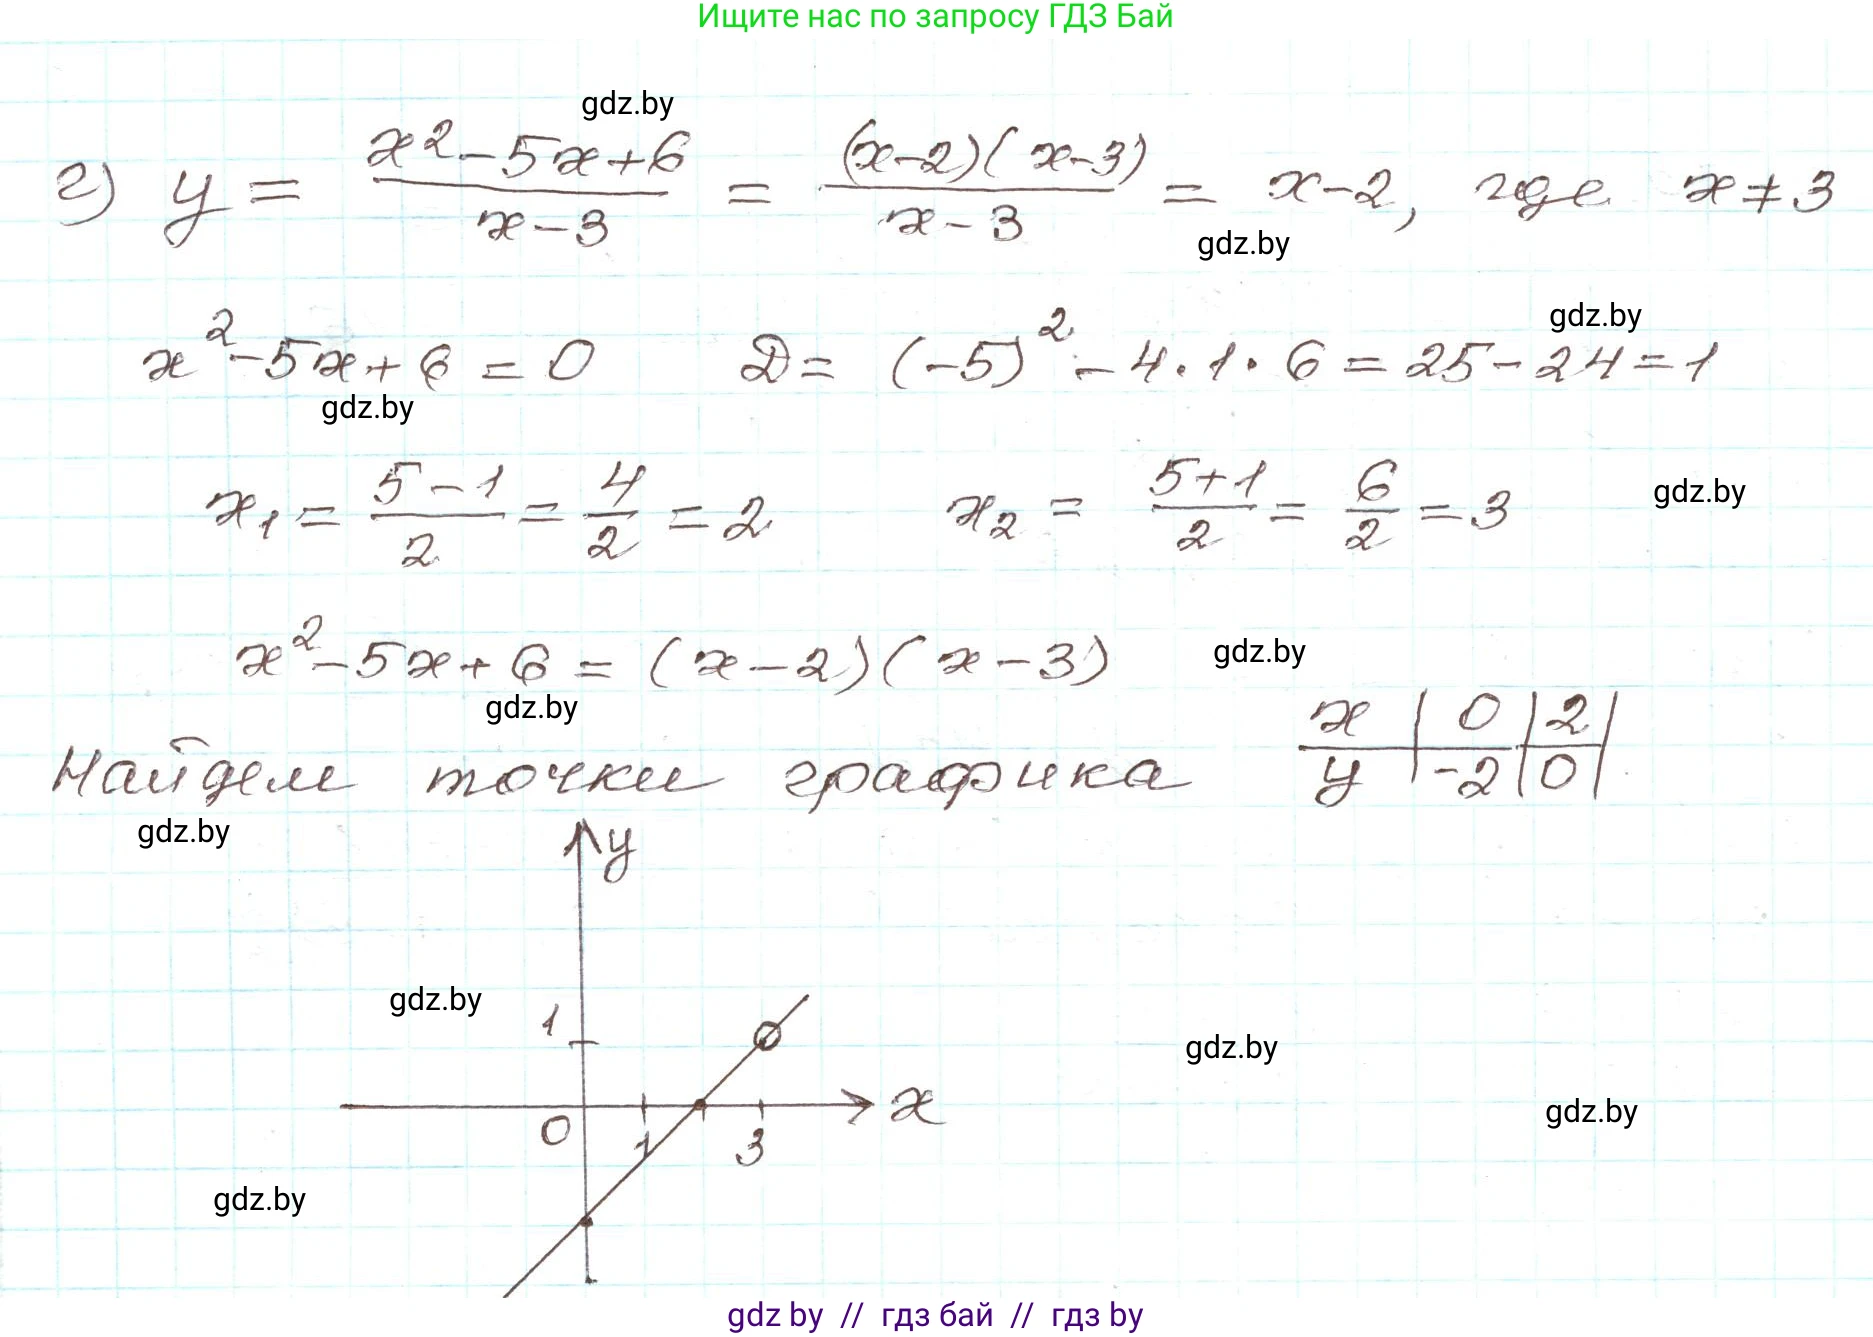 Ищите нас по запросу ГДЗ Бай
gdz.by
г) y = (x² - 5x + 6)/(x - 3) = ((x - 2)(x - 3))/(x - 3) = x - 2, где x ≠ 3
gdz.by
gdz.by
x² - 5x + 6 = 0 D = (-5)² - 4 · 1 · 6 = 25 - 24 = 1
gdz.by
x₁ = (5 - 1)/2 = 4/2 = 2 x₂ = (5 + 1)/2 = 6/2 = 3
gdz.by
x² - 5x + 6 = (x - 2)(x - 3)
gdz.by
gdz.by
Найдем точки графика
x | 0 | 2 |
y | -2 | 0 |
gdz.by
y
gdz.by
1
gdz.by
x
gdz.by
0 1 3
gdz.by
gdz by // гдз бай // гдз by